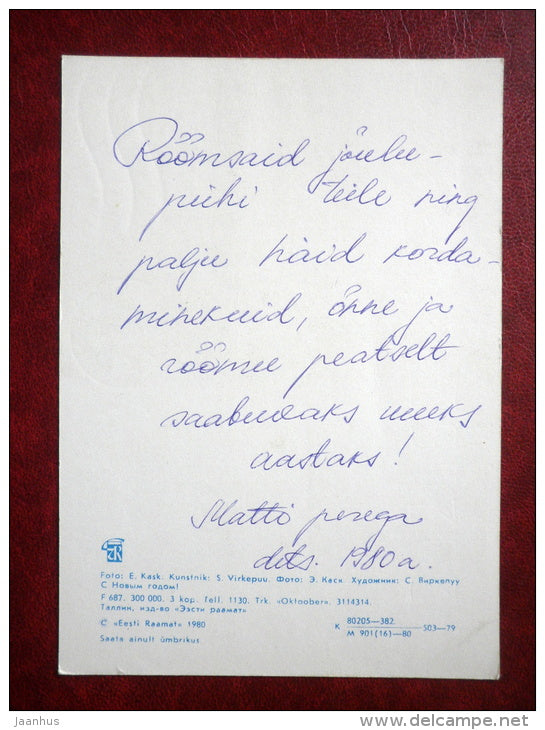 Rõõmsaid jõulu-
pühi teile ning
palju häid korda-
minekuid, õnne ja
rõõmu peatselt
saabuvaks uueks
aastaks!
Matti perega
dets. 1980a.
ER
Foto: E. Kask. Kunstnik: S. Virkepuu. Фото: Э. Каск. Художник: С. Виркепуу
С Новым годом!
F 687. 300 000. 3 kop. Tell. 1130. Trk. «Oktoober». 3114314.
Таллин, изд-во «Ээсти раамат»
© «Eesti Raamat» 1980
Saata ainult ümbrikus
К 80205—382 503—79
М 901(16)—80
Jaanhus
www.delcampe.net